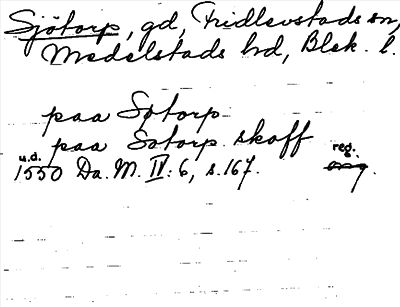 Sjötorp, gd, Fridlevstads sn,
Medelstads hd, Blek. l.
paa Sotorp
paa Sotorp skoff
u.d. reg.
1550 Da. M. IV: 6, s. 167. orig.